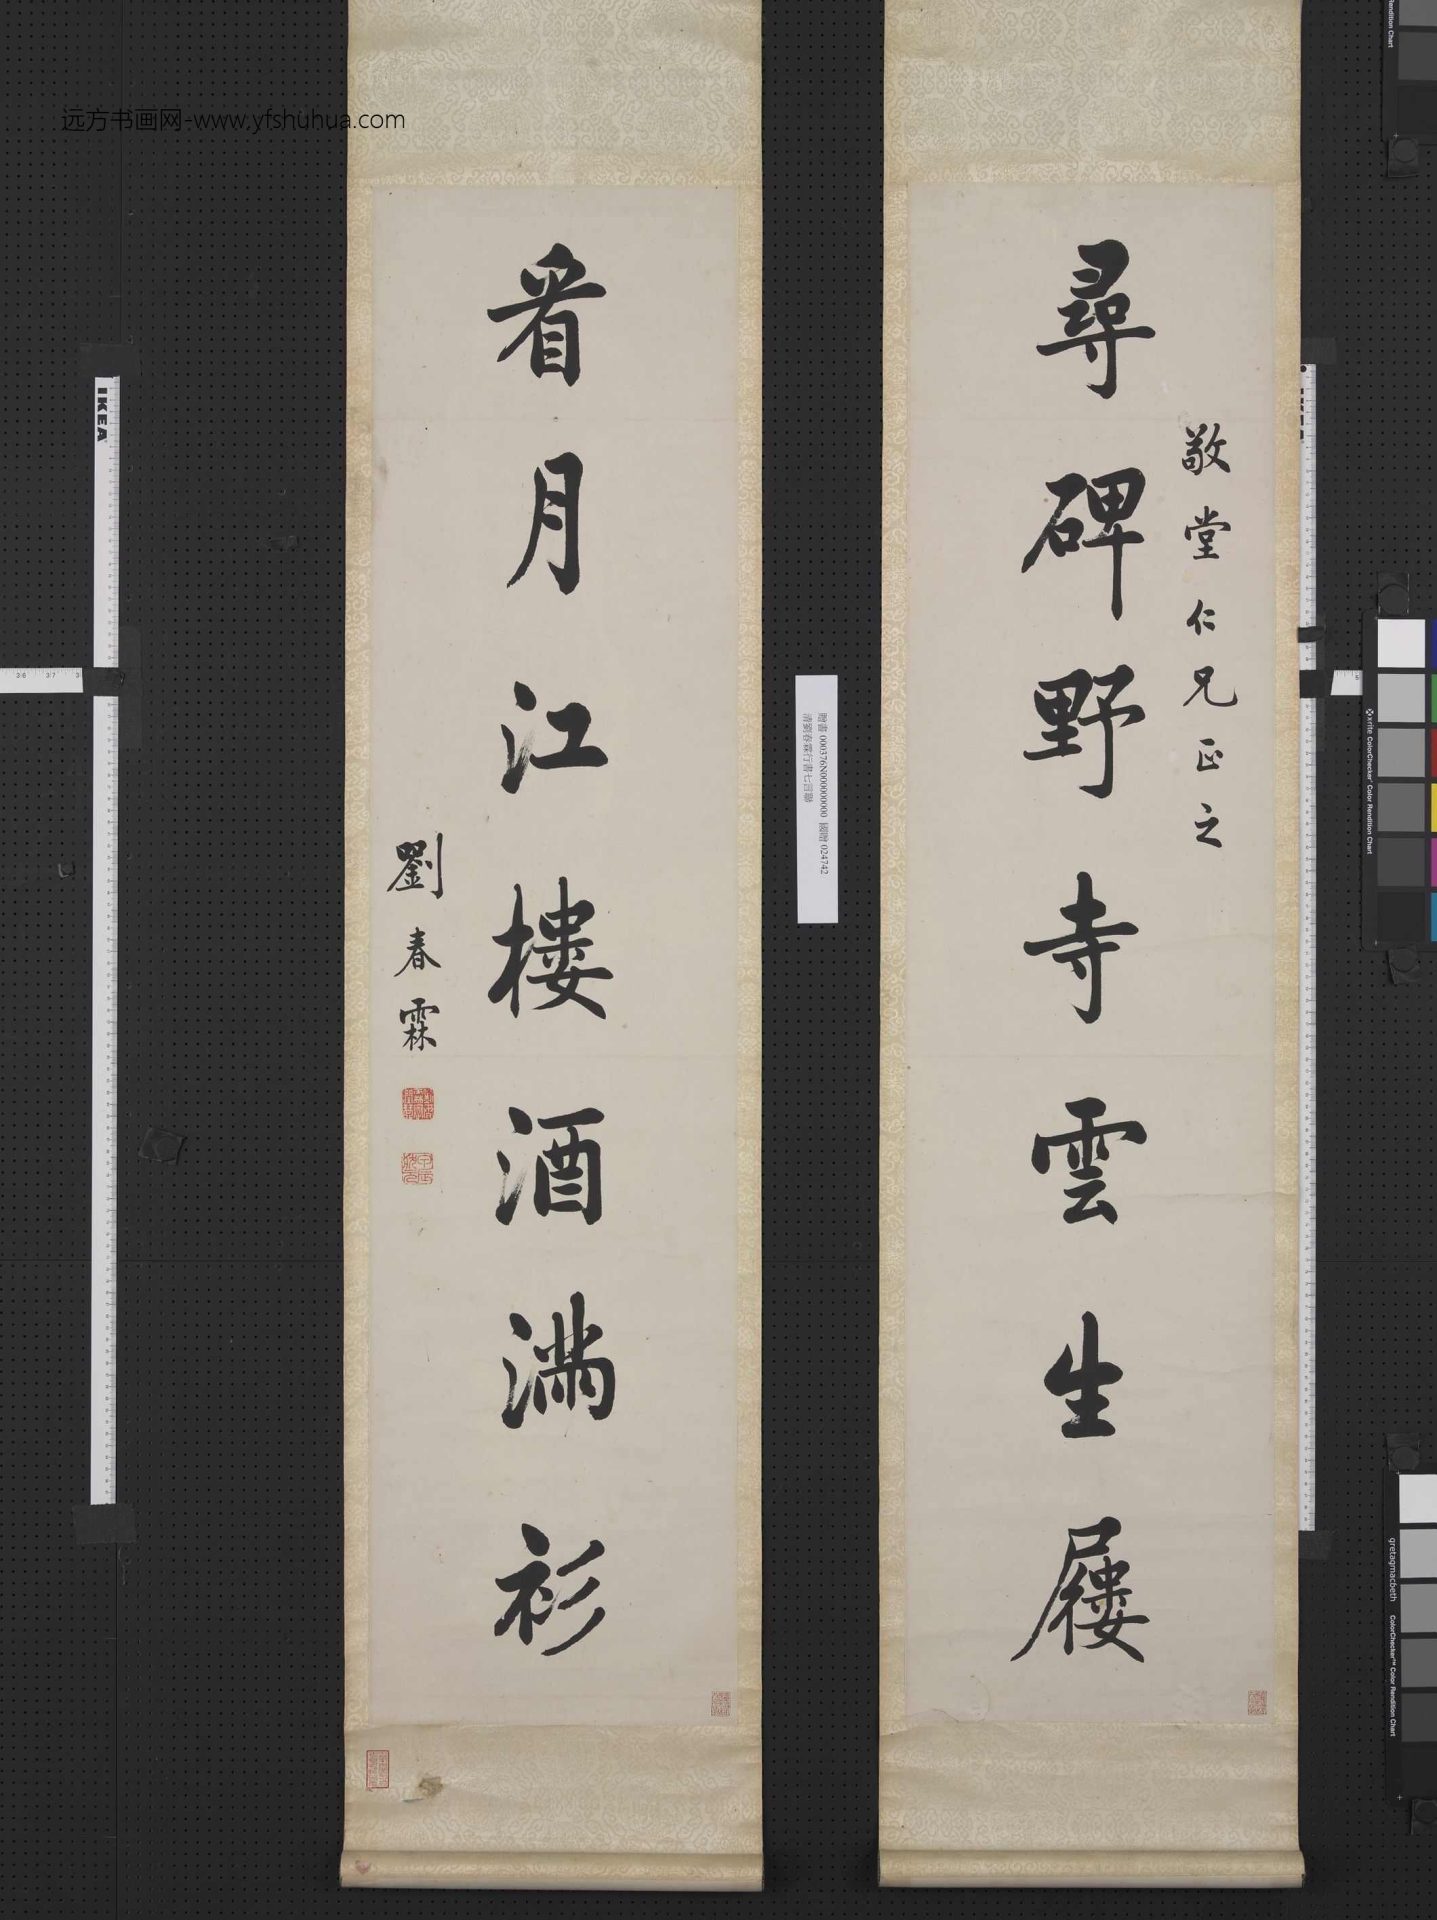 远方书画网-www.yfshuhua.com
尋碑野寺雲生屨
敬堂仁兄正之
看月江樓酒滿衫
劉春霖
贈書 000376N000000000 國贈 024742
清劉春霖行書七言聯
IKEA
x-rite ColorChecker Color Rendition Chart
gretagmacbeth ColorChecker Color Rendition Chart
Rendition Chart